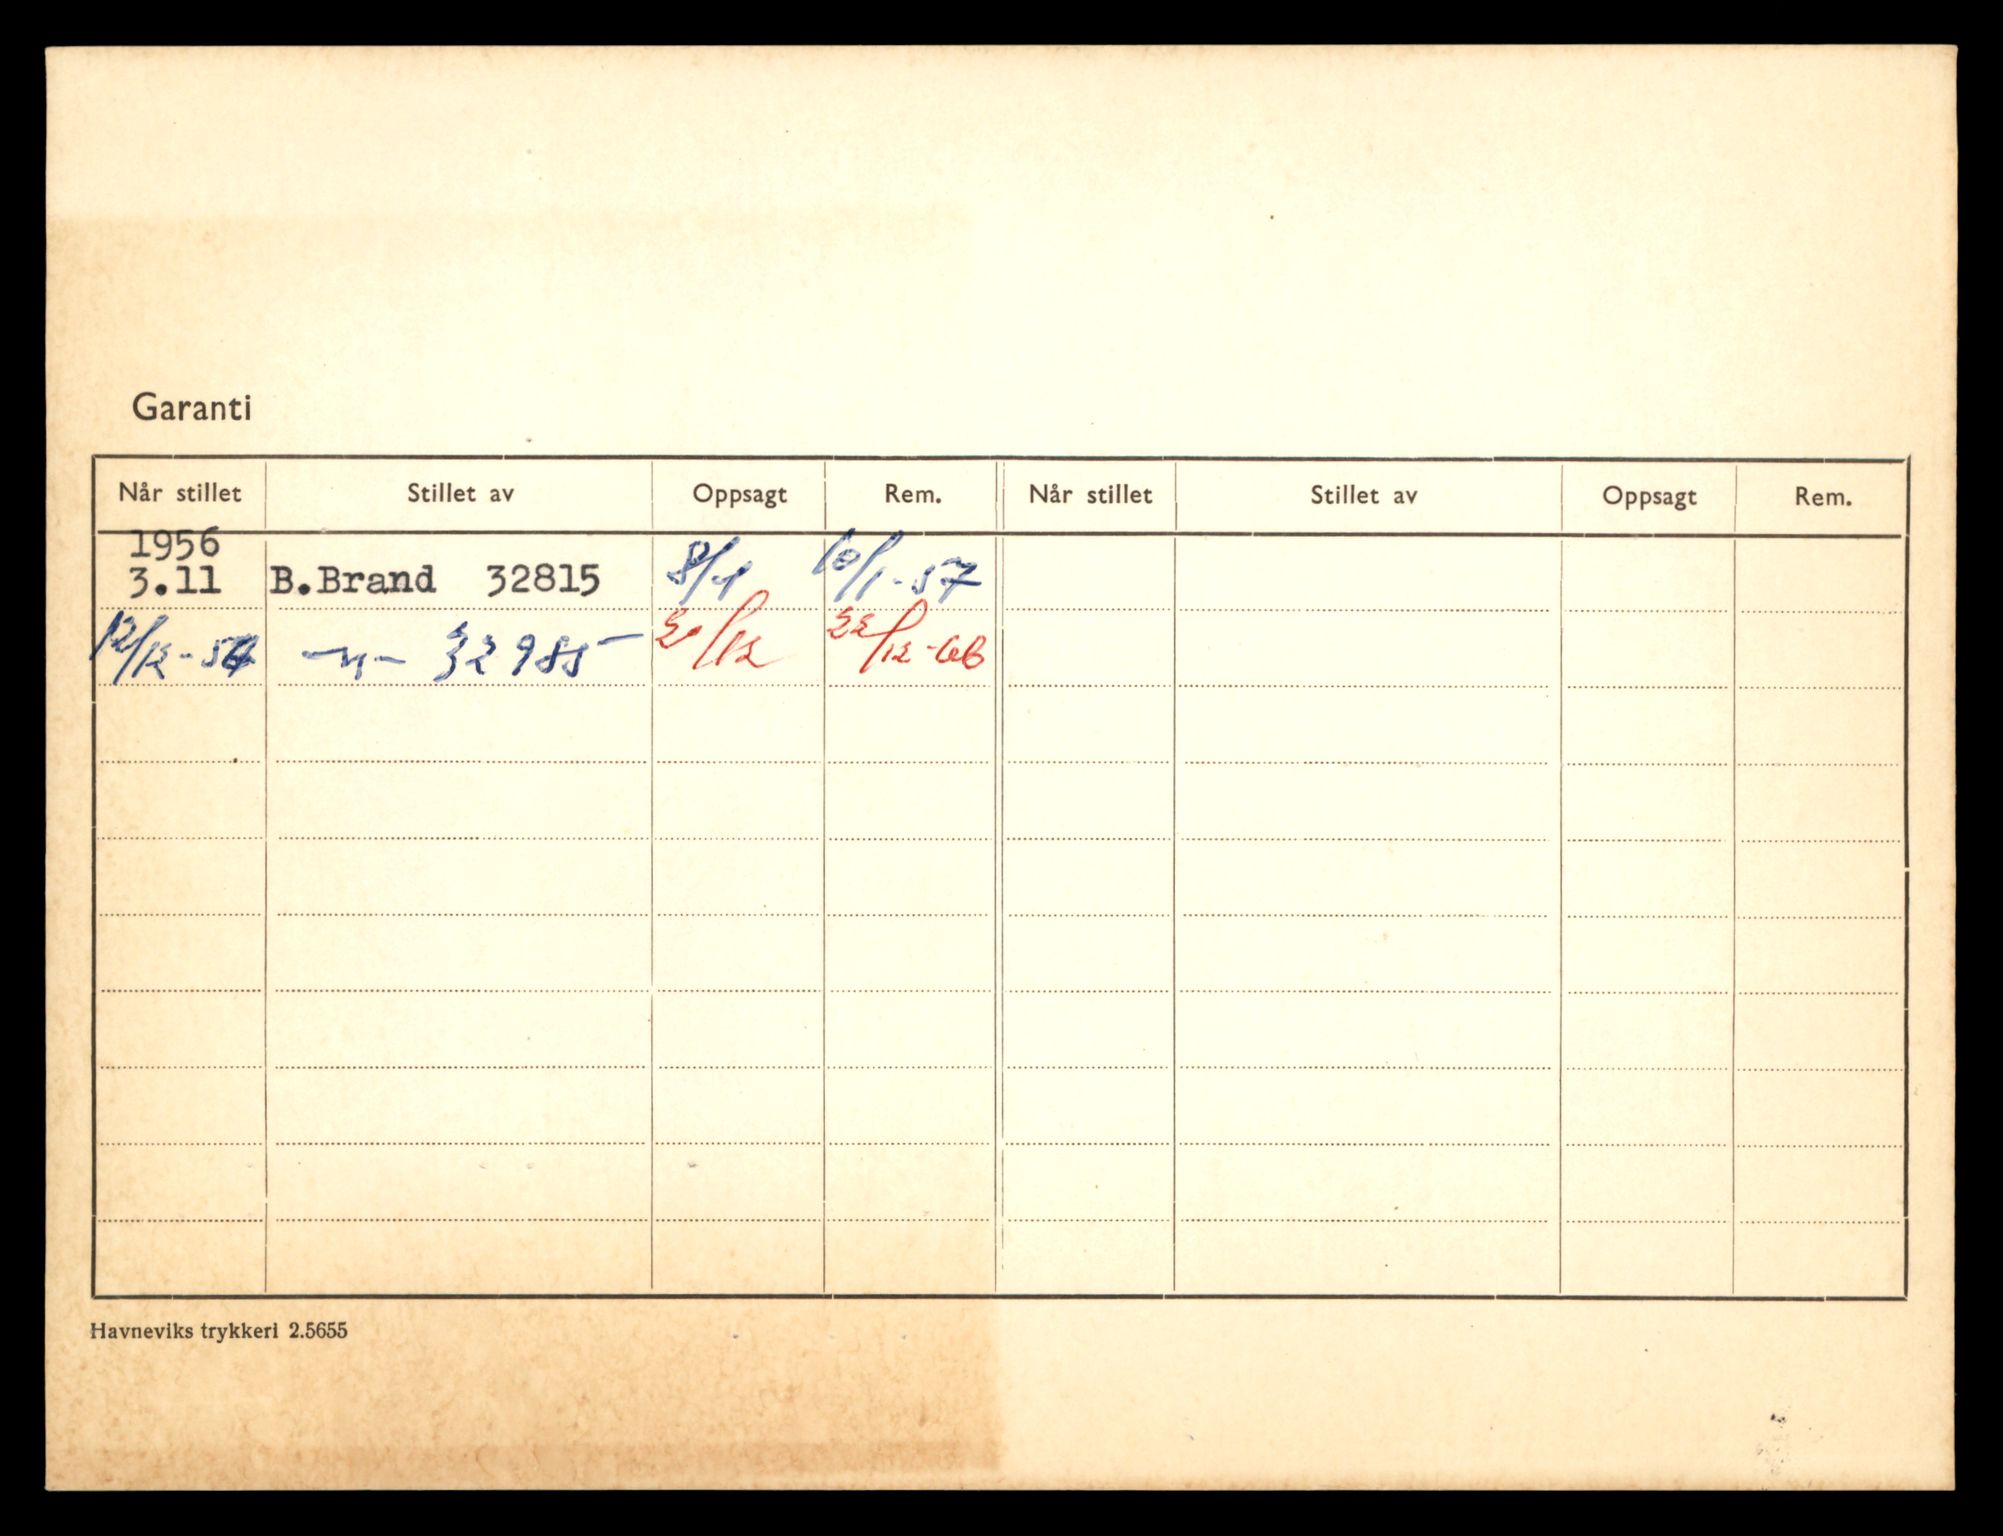 Garanti
Når stillet Stillet av Oppsagt Rem. Når stillet Stillet av Oppsagt Rem.
1956
3.11 B.Brand 32815 8/1 10/1-57
12/12-56 -"- 32985 20/12 22/12-60
Havneviks trykkeri 2.5655